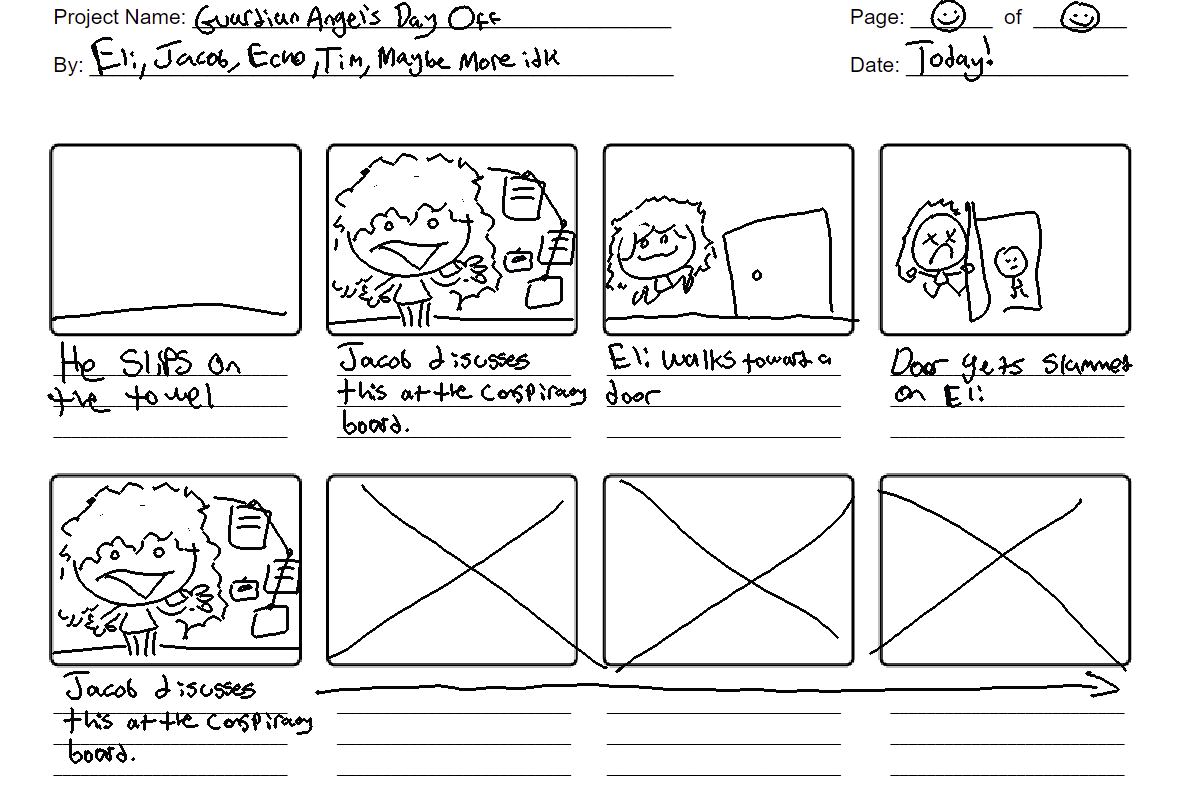 Project Name: Guardian Angel's Day Off
Page: of
By: Eli, Jacob, Echo, Tim, Maybe More idk
Date: Today!
He Slips on
the towel
Jacob discusses
this at the Conspiracy
board.
Eli walks toward a
door
Door gets slammed
on Eli
Jacob discusses
this at the Conspiracy
board.